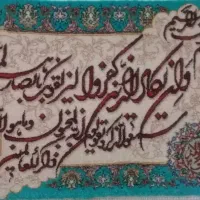 بسم الله الرحمن الرحیم
وان یکاد الذین کفروا لیزلقونک بابصارهم
لما سمعوا الذکر ویقولون انه لمجنون وما هو الا
ذکر للعالمین